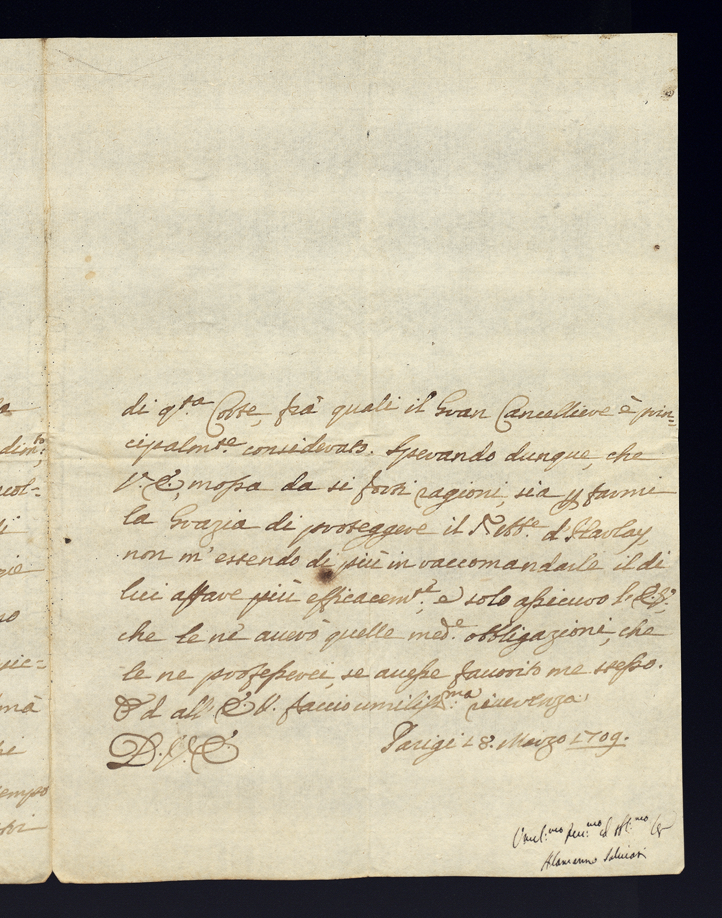 di q.sta Corte, frà quali il Gran Cancelliere è prin=
cipalm.te considerato. Sperando dunque, che
V. E., mossa da si forti ragioni, sia p farmi
la Grazia di proteggere il S.r Abb.e d'Harlay,
non m'estendo di più in raccomandarle il di
lui affare più efficacem.te, e solo assicuro l'E. V.
che le nè averò quelle med.e obbligazioni, che
le ne professerei, se avesse favorito me stesso.
Ed all'E. V. faccio umiliss.ma riverenza.
D. V. E. Parigi 18. Marzo 1709.
Umil.mo ser.mo ed obl.mo
Alamanno Salviati